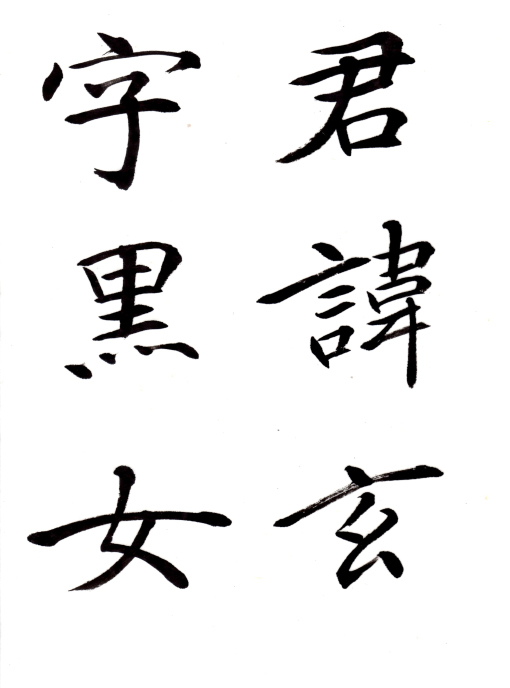 君諱玄
字黒女